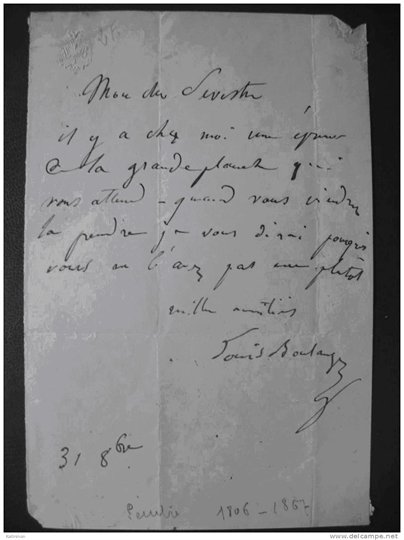 Mon cher Sevestre
il y a chez moi une épreuve
de la grande planche qui
vous attend - quand vous viendrez
la prendre je vous dirai pourquoi
vous ne l'avez pas eue plutôt
mille amitiés
Louis Boulanger
31 8bre
Peintre 1806-1867